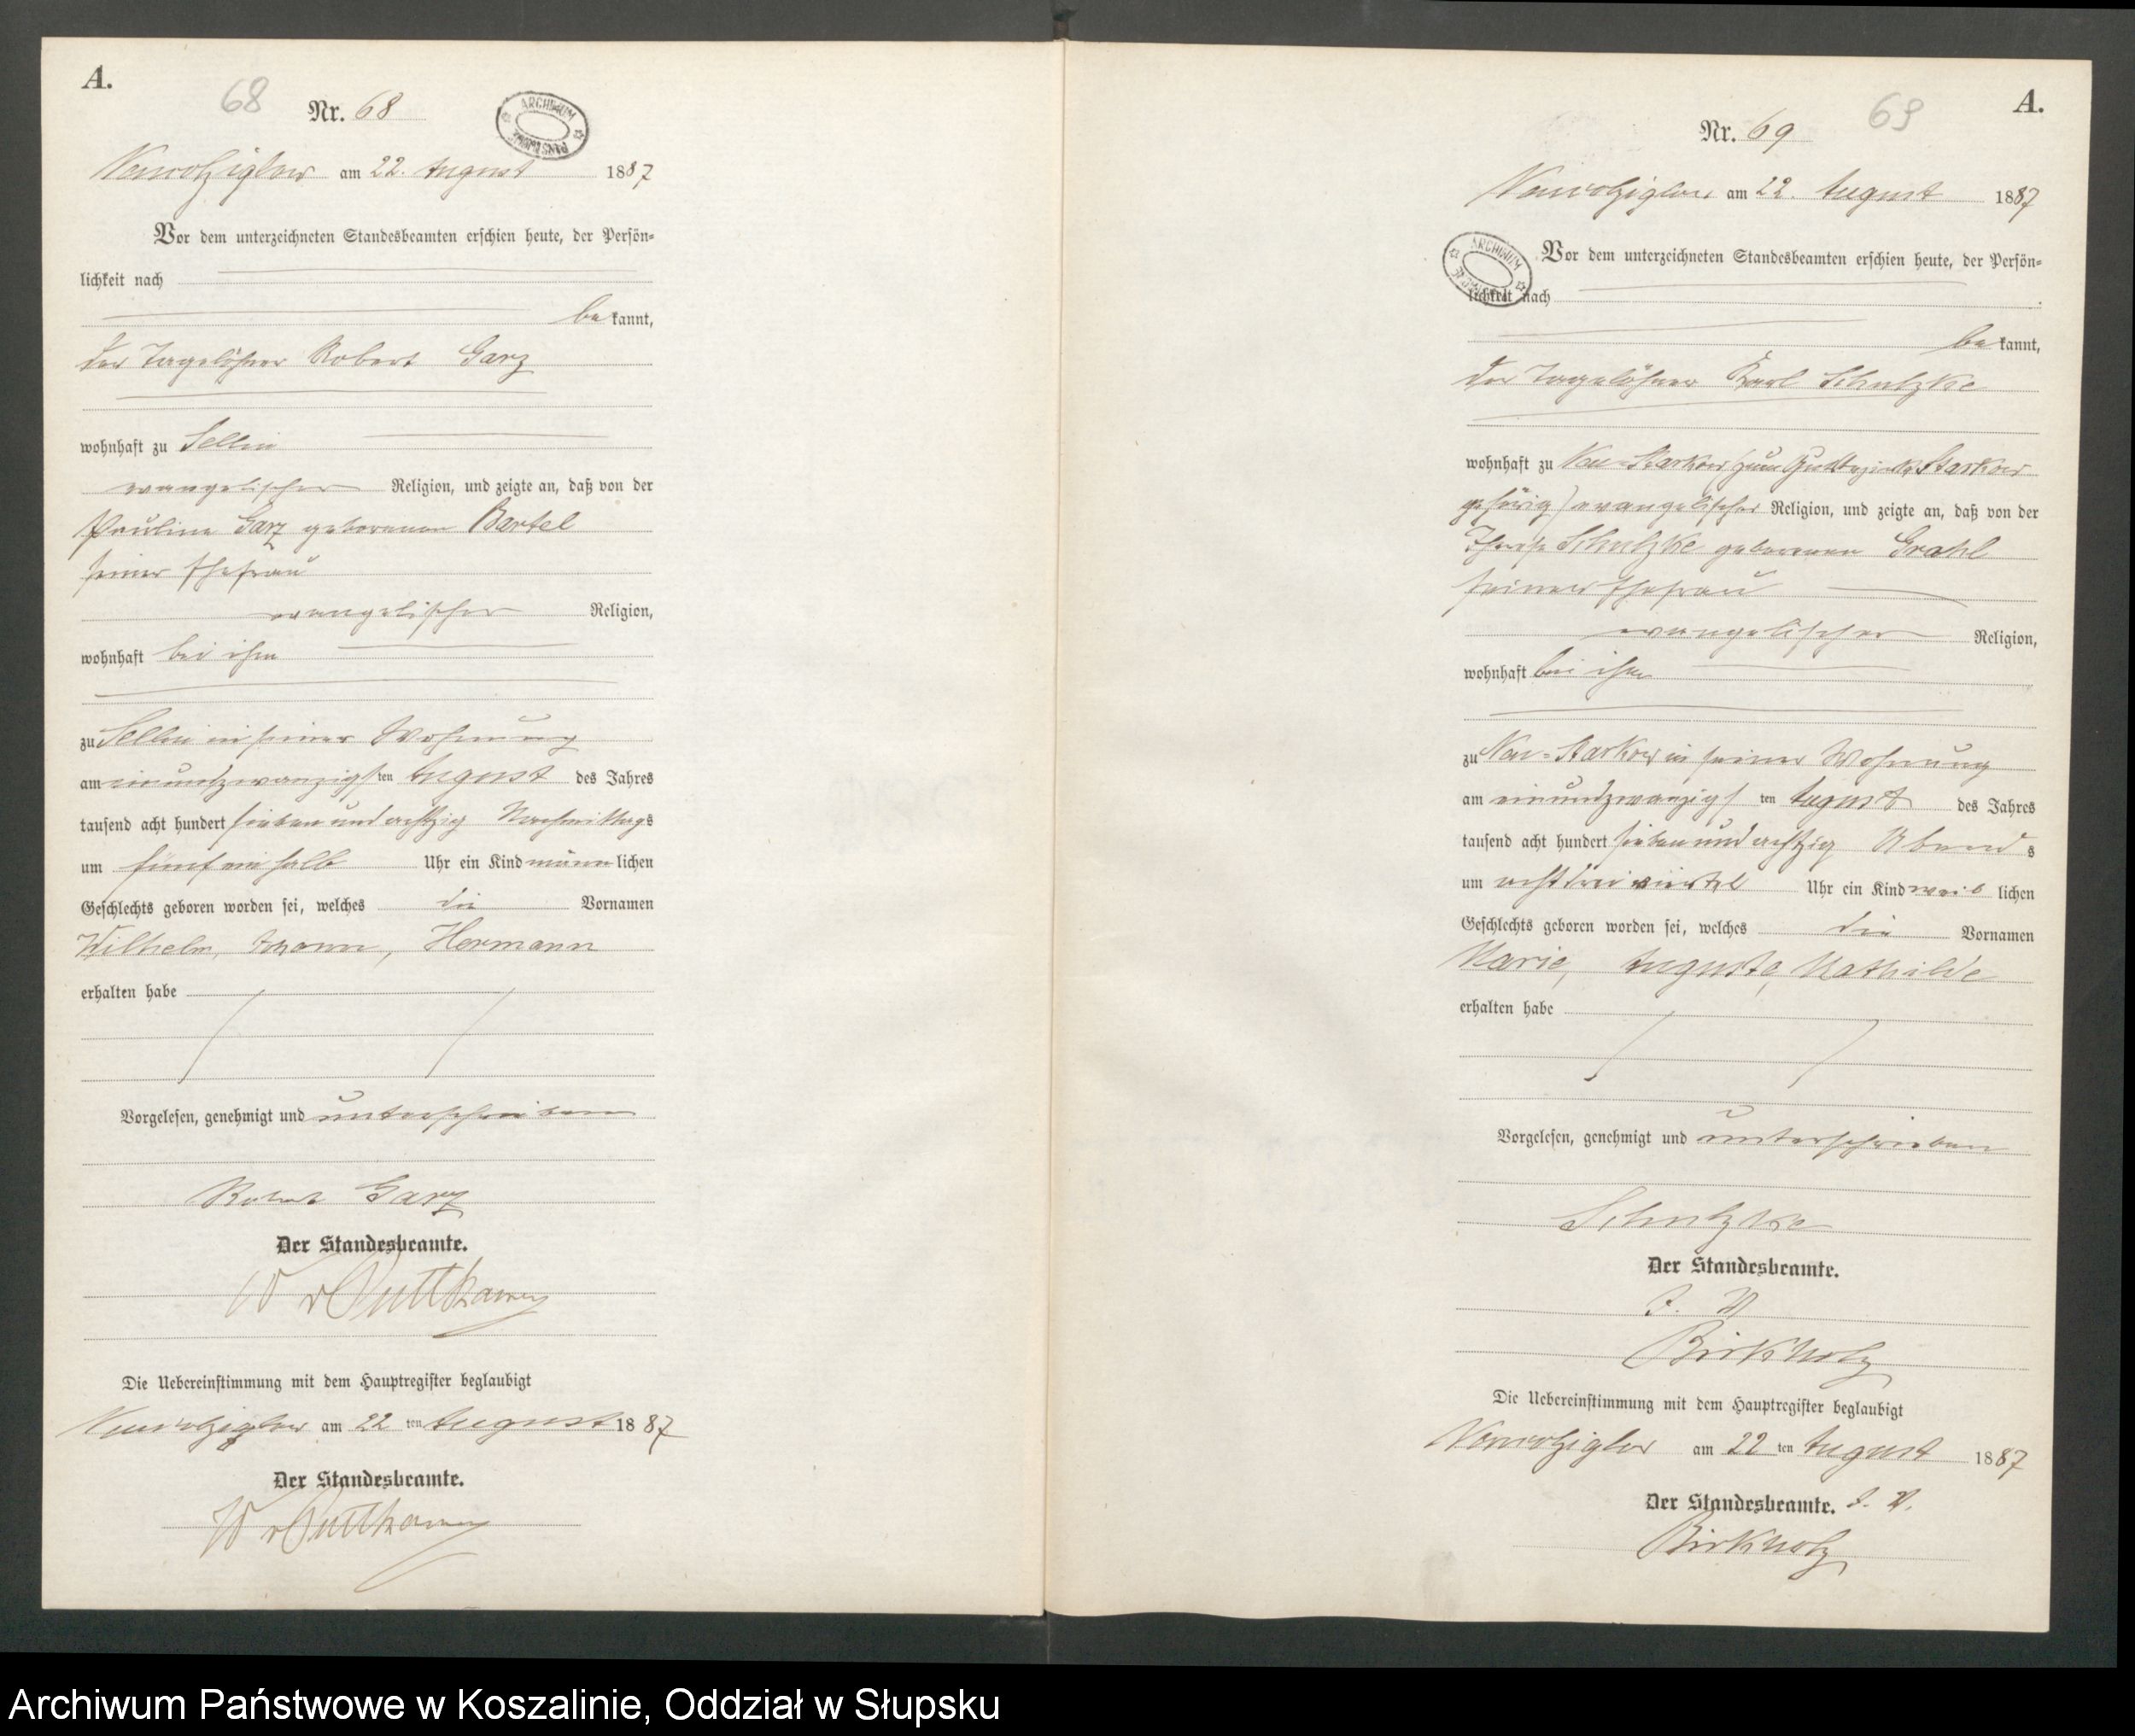 A.
68
Nr. 68
ARCHIWUM PAŃSTWOWE
am 22. August 1887
Vor dem unterzeichneten Standesbeamten erschien heute, der Persön=
lichkeit nach
bekannt,
der Tagelöhner Robert Garz
wohnhaft zu Sellin
evangelischer Religion, und zeigte an, daß von der
Pauline Garz geborenen Bartel
seiner Ehefrau
evangelischer Religion,
wohnhaft bei ihm
zu Sellin in seiner Wohnung
am einundzwanzigsten August des Jahres
tausend acht hundert sieben und achtzig Nachmittags
um fünf ein halb Uhr ein Kind männlichen
Geschlechts geboren worden sei, welches die Vornamen
Wilhelm, Hermann
erhalten habe
Vorgelesen, genehmigt und unterschrieben
Robert Garz
Der Standesbeamte.
W v Puttkamer
Die Uebereinstimmung mit dem Hauptregister beglaubigt
am 22 ten August 1887
Der Standesbeamte.
W v Puttkamer
A.
69
Nr. 69
am 22. August 1887
ARCHIWUM PAŃSTWOWE
Vor dem unterzeichneten Standesbeamten erschien heute, der Persön=
lichkeit nach
bekannt,
der Tagelöhner Karl Schulzke
wohnhaft zu Neu=Starkow (zum Gutsbezirk Starkow
gehörig) evangelischer Religion, und zeigte an, daß von der
Therese Schulzke geborenen Grahl
seiner Ehefrau
evangelischer Religion,
wohnhaft bei ihm
zu Neu=Starkow in seiner Wohnung
am einundzwanzigsten August des Jahres
tausend acht hundert sieben und achtzig Abends
um acht drei viertel Uhr ein Kind weiblichen
Geschlechts geboren worden sei, welches die Vornamen
Marie, Auguste, Mathilde
erhalten habe
Vorgelesen, genehmigt und unterschrieben
Schulzke
Der Standesbeamte.
I. V
Birkholz
Die Uebereinstimmung mit dem Hauptregister beglaubigt
am 22 ten August 1887
Der Standesbeamte. I. V.
Birkholz
Archiwum Państwowe w Koszalinie, Oddział w Słupsku